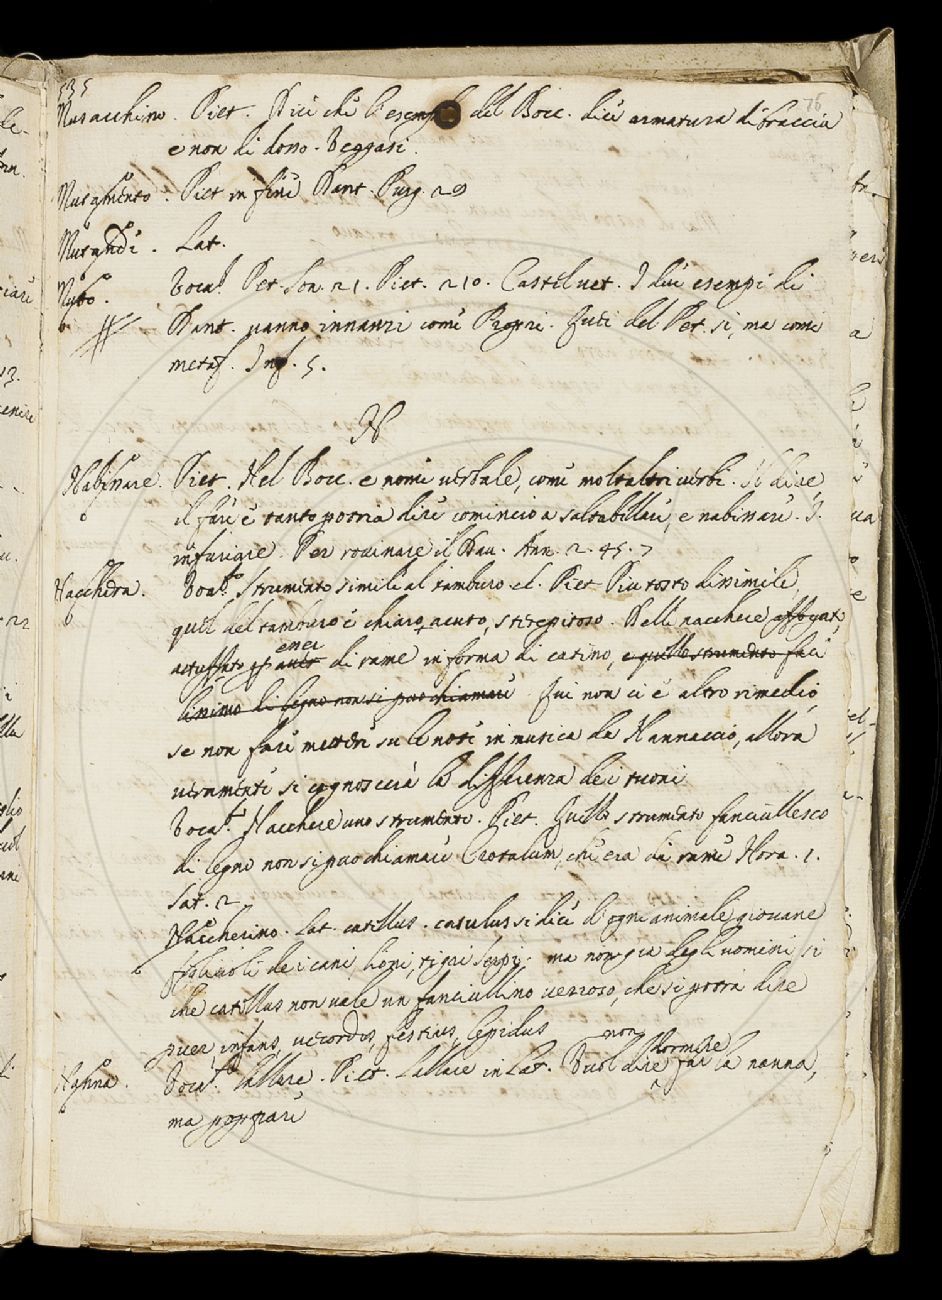 535
76
Musacchino. Piet. Dici chi l'esempio del Bocc. dice armatura di braccia
e non di dosso. Veggasi
Piet in fine Dant. Purg. 29
Lat.
Vocab. Pet. Son. 21. Piet. 210. Castelvet. I due esempi di
Dant. vanno innanzi come Propri. del Pet. si, ma come
metaf. Inf. 5.
N
Nabissare. Piet. Nel Bocc. e nome verbale, come molt'altri verbi. Il dire
il fare e tanto potria dire comincio a saltabillare, e nabissare. I.
infuriare. Per rovinare il Dav. Ann. 2. 45. 7
Nacchera. Vocab. Strumento simile al tamburo et. Piet Piu tosto dissimile,
quel del tamburo è chiaro, acuto, strepitoso. Delle nacchere
enei
di rame in forma di catino, e quello strumento faci
lissimo di legno non si puo chiamare Qui non ci è altro rimedio,
se non fare mettere su le note in musica da Nannaccio, allora
veramente si cognoscerà la differenza dei tuoni
Vocab. Nacchere uno strumento. Piet. Quello strumento fanciullesco
di legno non si puo chiamare Crotalum, che era di rame Hora. 1.
Sat. 2
Naccherino. Lat. catellus. catulus si dice d'ogni animale giovane
figliuoli dei cani lioni, tigri serpi. ma non gia degli uomini si
che catellus non vale un fanciullino vezzoso, che si potrà dire
puer, infans, festivus, lepidus
non
dormire
Nanna. Vocab. lallare. Piet. Lallare in Lat. Vuol dire far la nanna,
ma poppare